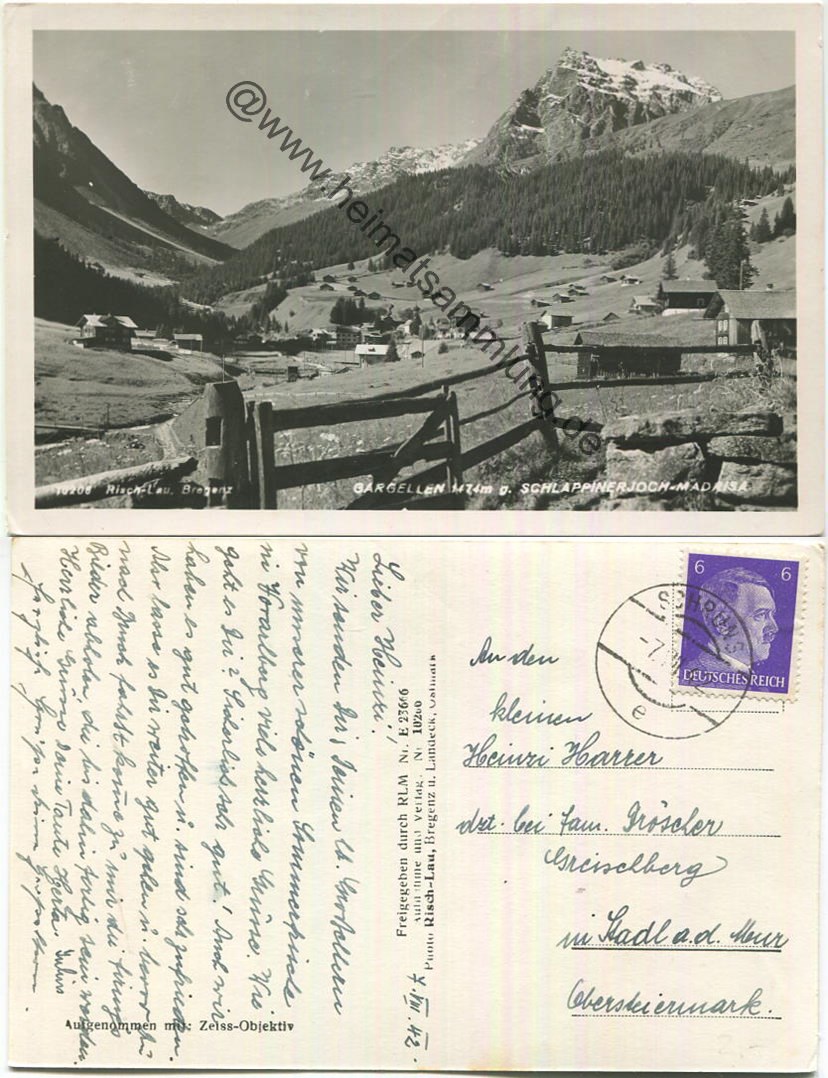 @www.heimatsammlung.de
10206 Risch-Lau, Bregenz
GARGELLEN 1474m g. SCHLAPPINERJOCH-MADRISA
Lieber Heinzi!
Wir senden Dir, Deinen lb. Großeltern
von unserer schönen Sommerfrische
in Vorarlberg viele herzliche Grüße. Wie
geht es Dir? Sicherlich sehr gut! Auch wir
haben es gut getroffen u. sind sehr zufrieden.
Also lasse es Dir weiter gut gehen u. bevor Du
nach Bruck fährst komme zu mir die
Bilder abholen, die bis dahin fertig sein werden.
Herzliche Grüße Deine Tante Herta
7.VII.42.
Freigegeben durch RLM Nr. E 23666
Aufnahme und Verlag, Nr. 10206
Photo Risch-Lau, Bregenz u. Landeck, Ostmark
Aufgenommen mit: Zeiss-Objektiv
6 6
DEUTSCHES REICH
SCHRUNS
e
An den
kleinen
Heinzi Harrer
dzt. bei Fam. Dröscher
Greiselberg
in Stadl a.d. Mur
Obersteiermark.